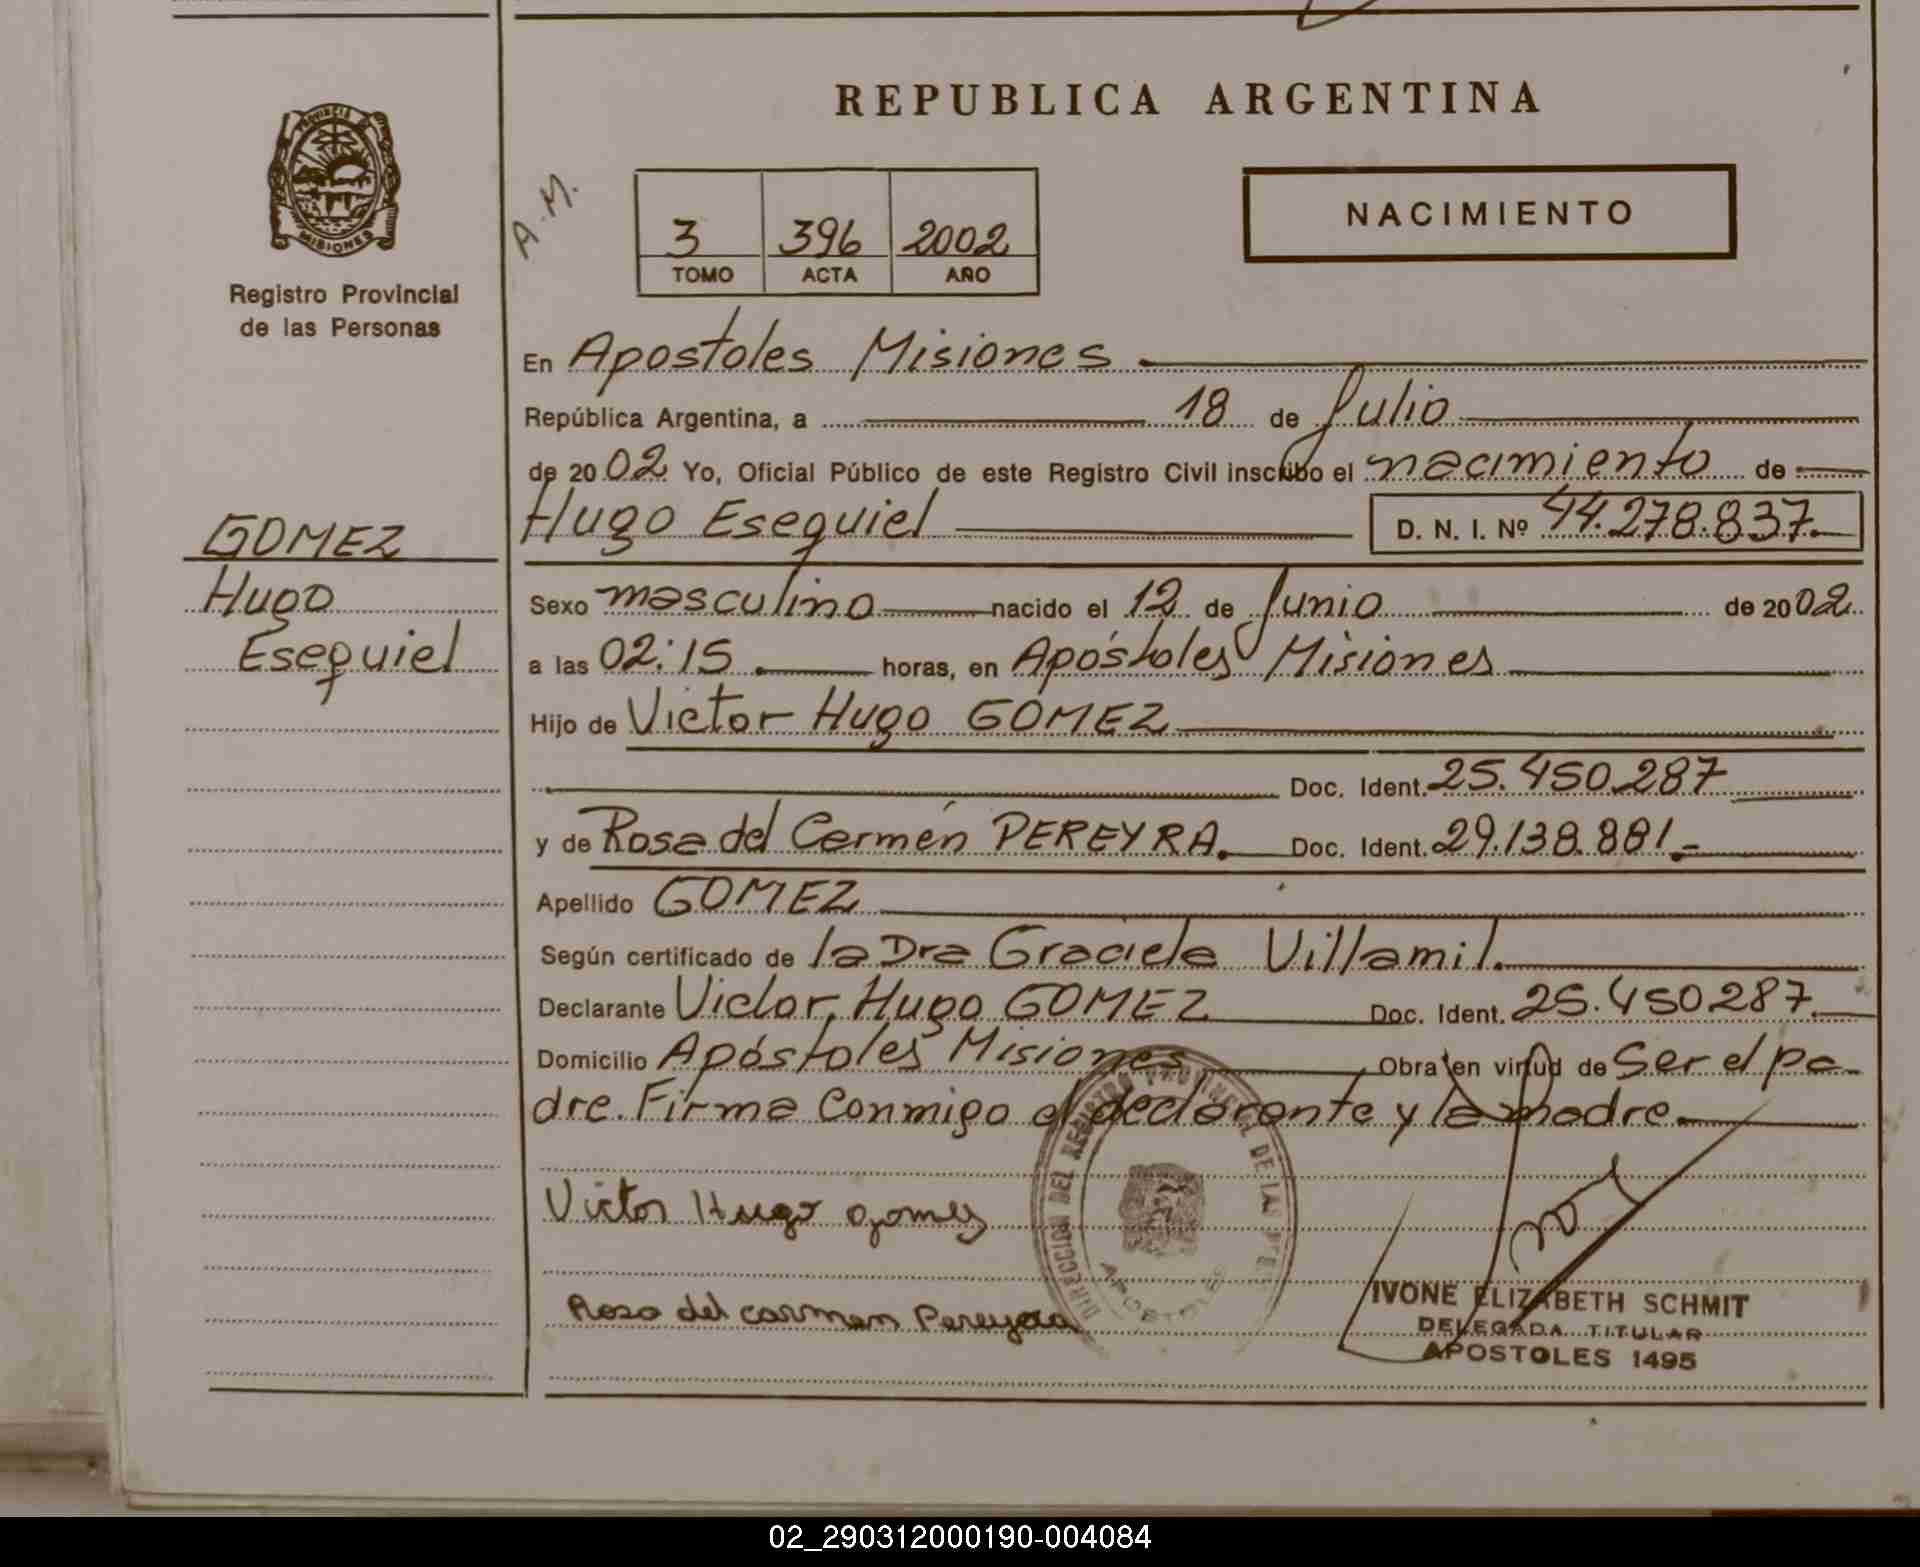 REPUBLICA ARGENTINA
PROVINCIA DE
MISIONES
Registro Provincial
de las Personas
A.M.
3 396 2002
TOMO ACTA AÑO
NACIMIENTO
En Apostoles Misiones
República Argentina, a 18 de Julio
de 2002 Yo, Oficial Público de este Registro Civil inscribo el nacimiento de
Hugo Esequiel D. N. I. Nº 44.278.837.
GOMEZ
Hugo
Esequiel
Sexo masculino nacido el 12 de Junio de 2002
a las 02:15 horas, en Apóstoles Misiones
Hijo de Victor Hugo GOMEZ
Doc. Ident. 25.450.287
y de Rosa del Carmen PEREYRA. Doc. Ident. 29.138.881.-
Apellido GOMEZ
Según certificado de la Dra Graciela Villamil.
Declarante Victor Hugo GOMEZ Doc. Ident. 25.450287
Domicilio Apóstoles Misiones Obra en virtud de Ser el pa
dre. Firma Conmigo el declarante y la madre.
Victor Hugo gomez
Rosa del carmen Pereyra
DIRECCION DEL REGISTRO PROVINCIAL DE LAS
APOSTOLES
IVONE ELIZABETH SCHMIT
DELEGADA TITULAR
APOSTOLES 1495
02_290312000190-004084